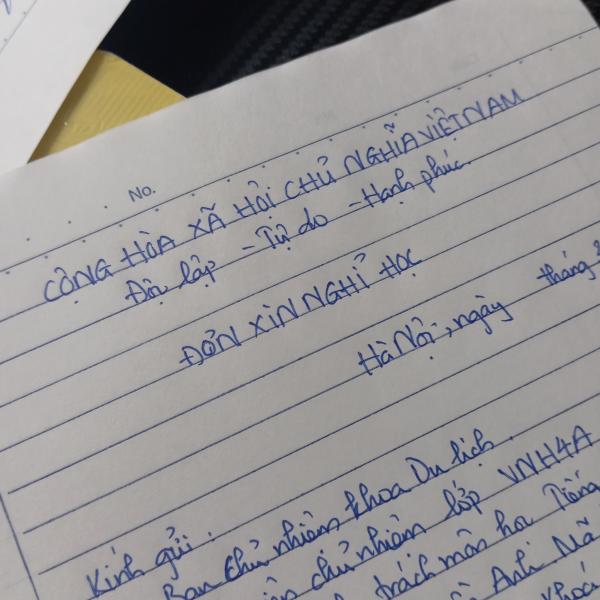 No.
CỘNG HÒA XÃ HỘI CHỦ NGHĨA VIỆT NAM
Độc lập - Tự do - Hạnh phúc.
ĐƠN XIN NGHỈ HỌC
Hà Nội, ngày tháng
Kính gửi:
Ban chủ nhiệm khoa Du lịch.
chủ nhiệm lớp VNH4A
trách môn học Tiếng
Anh